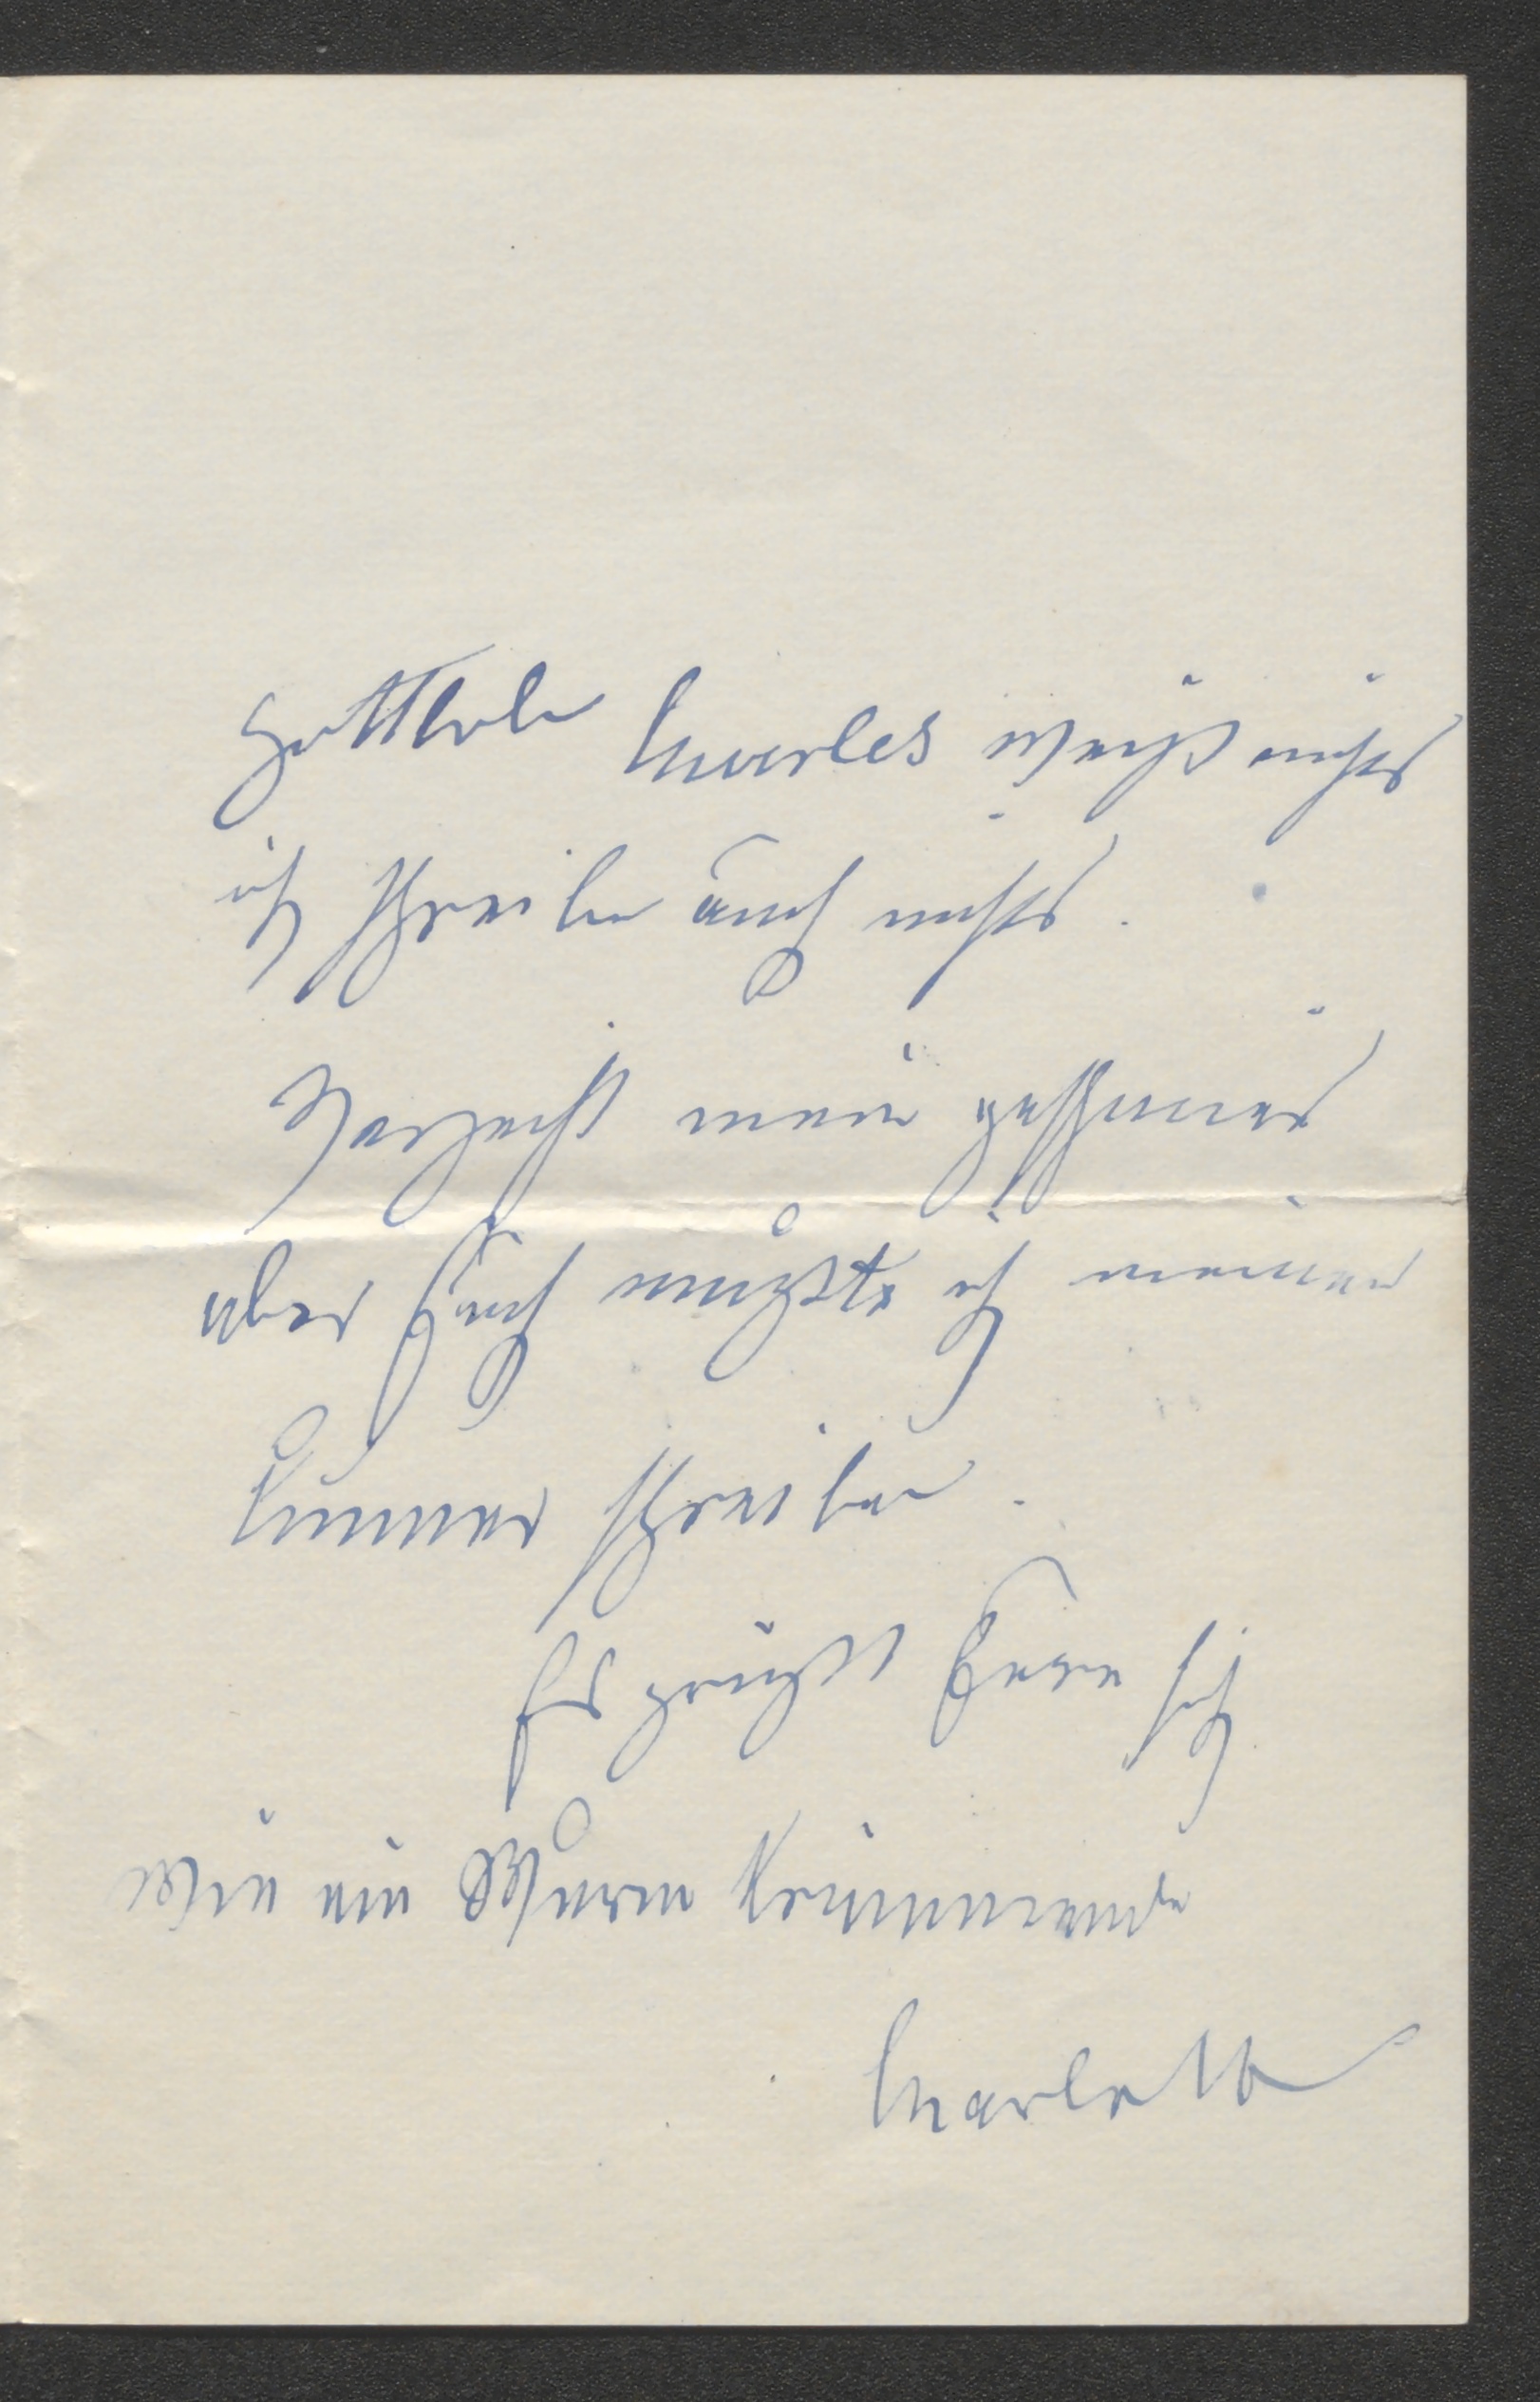 Gottlob Charles weiß nichts
ich schreibe auch nichts.
Verzeiht mein
aber Euch mußte ich meinen
Kummer schreiben.
Es grüßt Eure sich
wie ein Wurm krümmende
Charlott